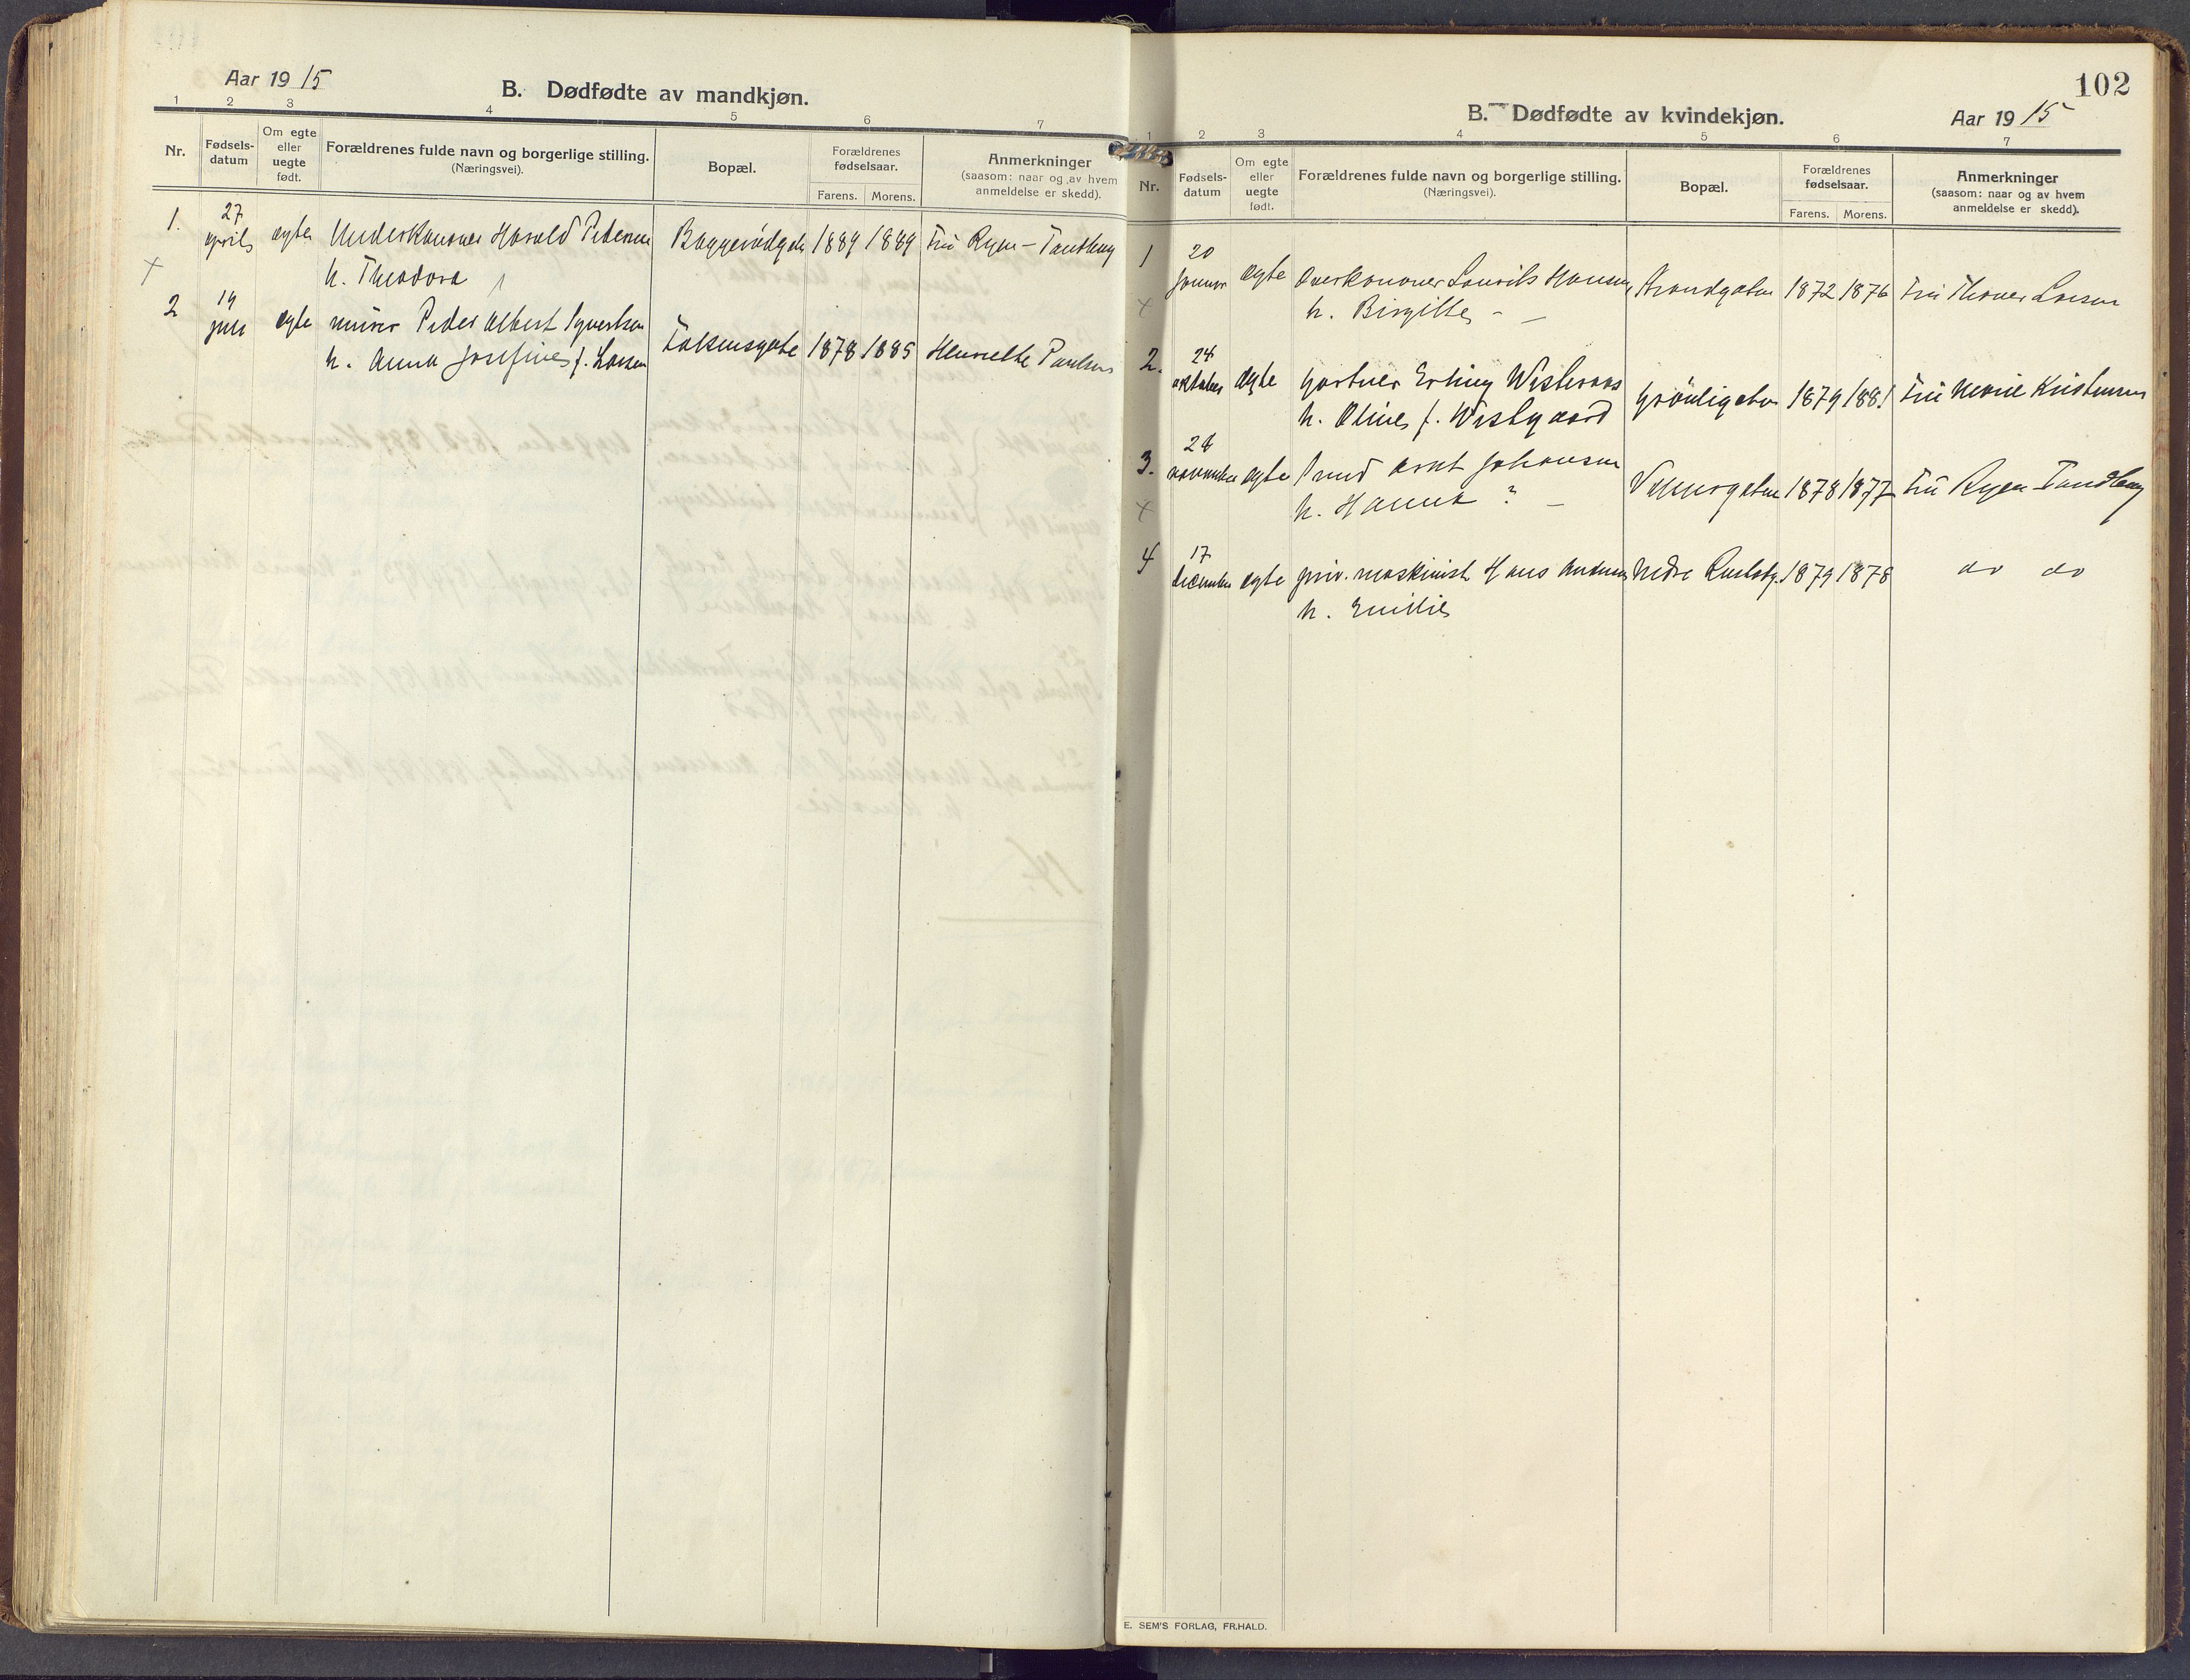 Aar 1915
B. Dødfødte av mandkjøn.
1 2 3 4 5 6 7
Nr. Fødsels-datum Om egte eller uegte født. Forældrenes fulde navn og borgerlige stilling. (Næringsvei). Bopæl. Forældrenes fødselsaar. Farens. Morens. Anmerkninger (saasom: naar og av hvem anmeldelse er skedd).
1. 27 april egte Underkanoner Harald Pedersen Baggerødgt 1889 1889 Fru Ryen-Tandberg
h. Theodora
2 14 juli egte murer Peder Albert Syvertsen Falsensgate 1878 1885 Henriette Paulsen
h. Anna Josefine f. Larsen
102
B. Dødfødte av kvindekjøn.
Aar 1915
1 2 3 4 5 6 7
Nr. Fødsels-datum Om egte eller uegte født. Forældrenes fulde navn og borgerlige stilling. (Næringsvei). Bopæl. Forældrenes fødselsaar. Farens. Morens. Anmerkninger (saasom: naar og av hvem anmeldelse er skedd).
1 20 januar egte Overkanoner Laurits Hansen, Strandgaten 1872 1876 Fru Larsen
h. Birgitte - -
2. 24 oktober egte gartner Erling Westeraas Grönligaten 1879 1881 Fru Marie Kristensen
h. Oline f. Westgaard
3. 24 november egte Smed Arnt Johansen 1878 1877 Fru Ryen Tandberg
h. Hanna ? -
4 17 december egte priv. maskinist Hans Andersen Nedre 1879 1878 do do
h. Emilie
E. SEM'S FORLAG, FR.HALD.